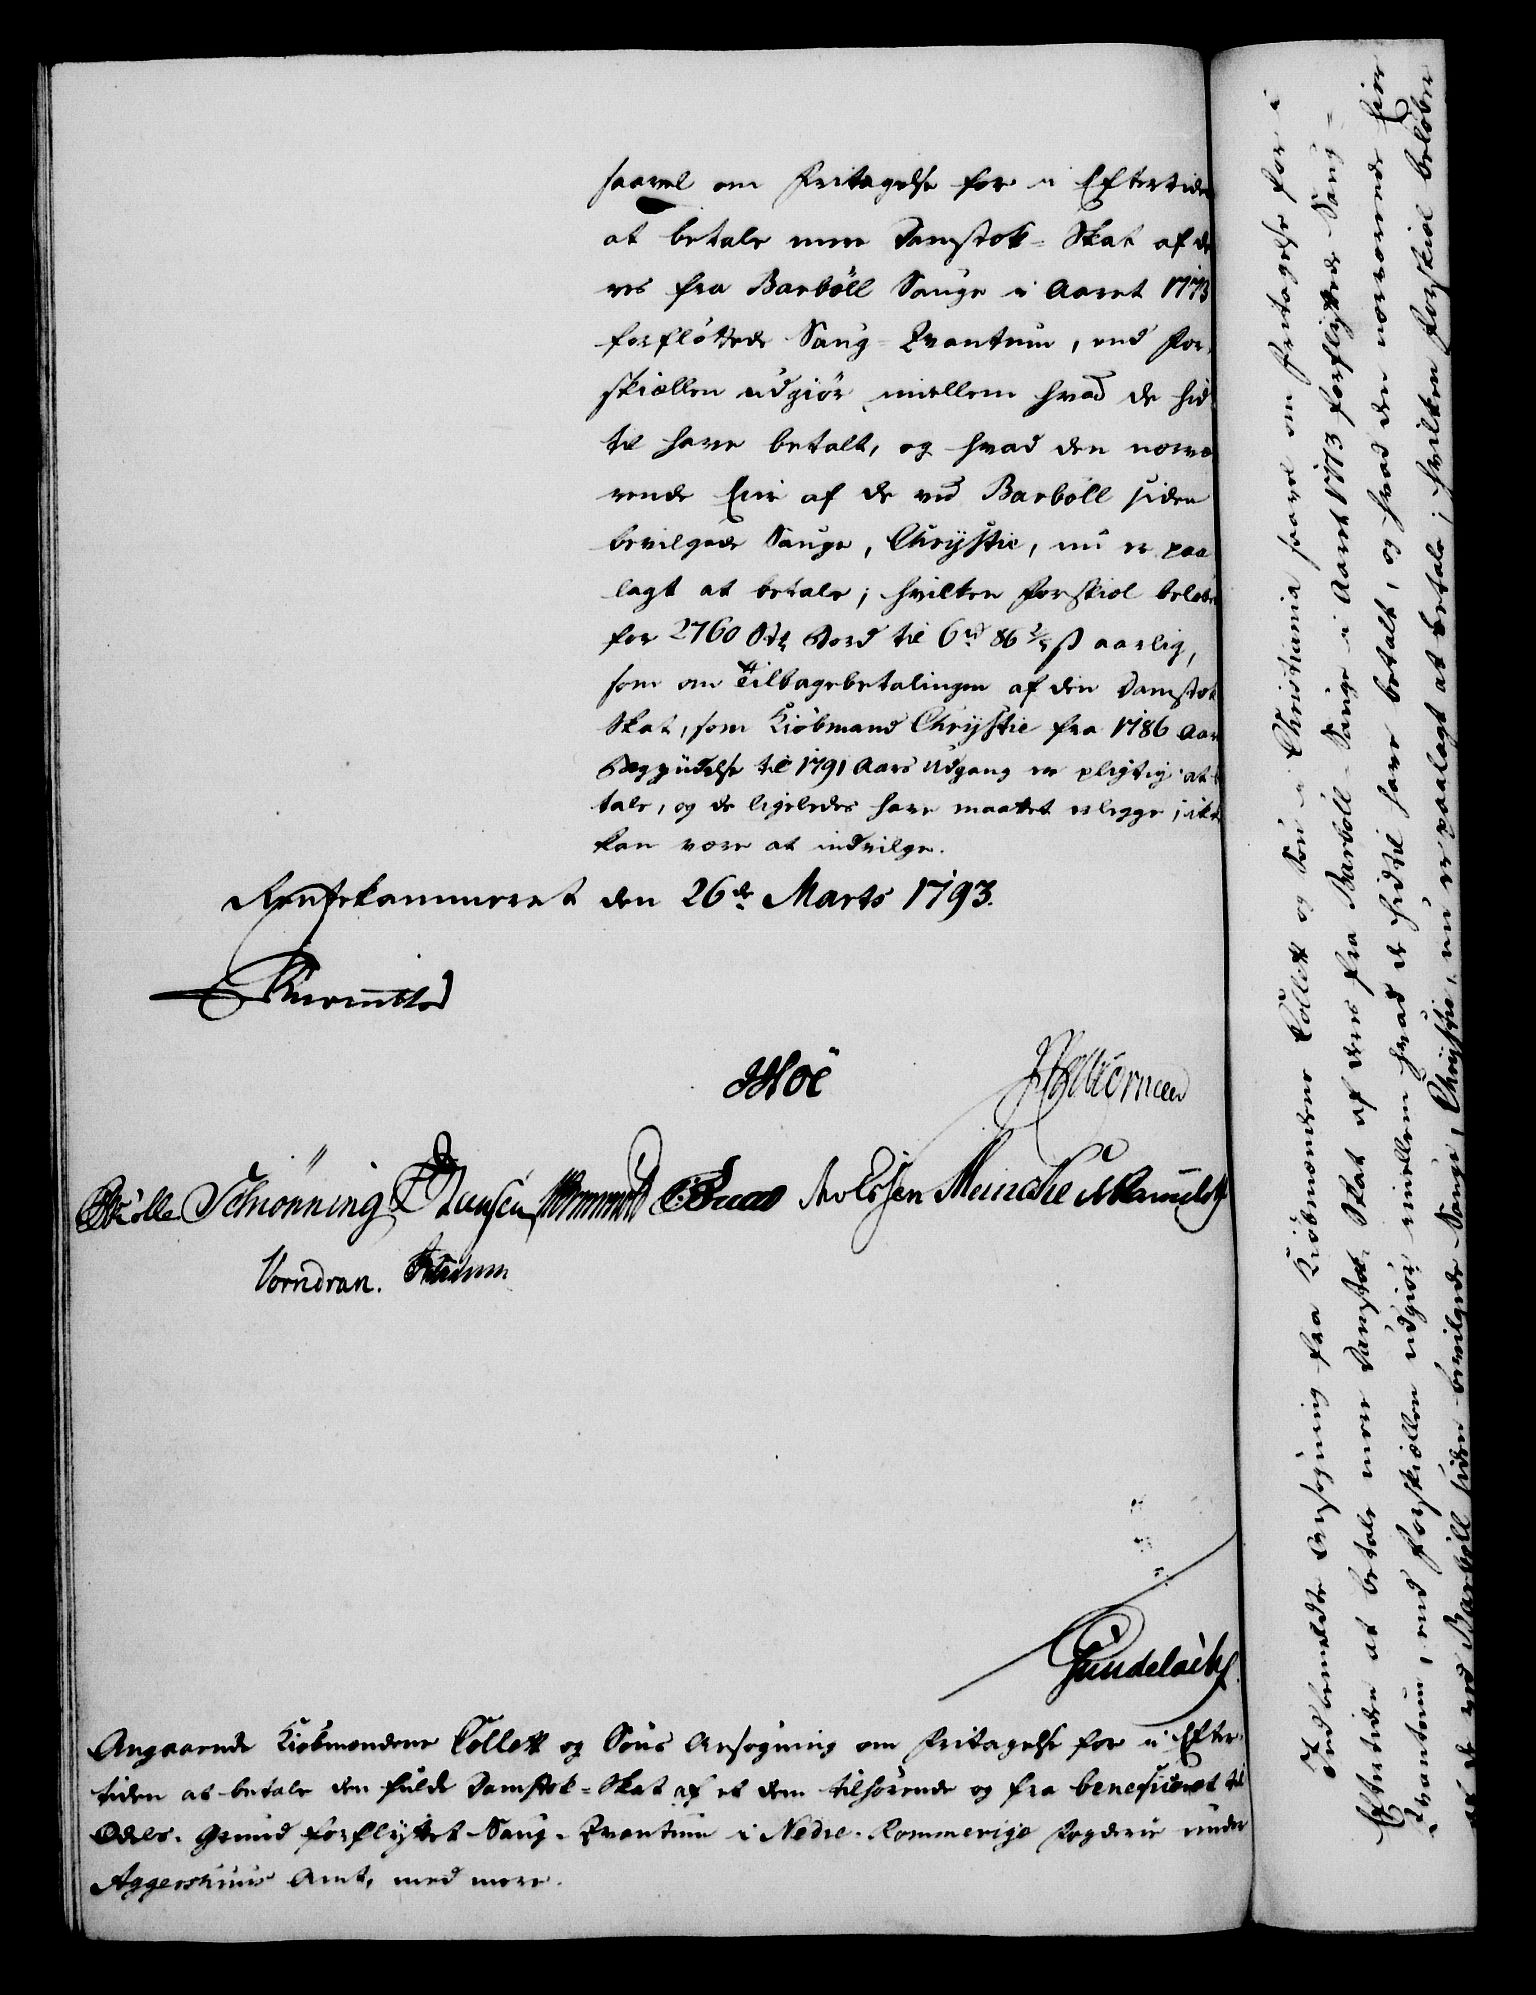 saavel om Fritagelse for i Eftertiden
at betale mere Damstok-Skat af de
res fra Barböll Sauge i Aaret 1773
forflöttede Saug-Qvantum, end For-
skiællen udgiör imellem hvad de hid
til have betalt, og hvad den nærvæ
rende Eier af de ved Barböll siden
bevilgede Sauge, Chrystie, nu er paa
lagt at betale; hvilken Forskiel belöber
for 2760 Bord til 6 rd 86 2/5 ß aarlig,
som om Tilbagebetalingen af den Damstok
Skat, som Kiöbmand Chrystie fra 1786 Aars
Begyndelse til 1791 Aars Udgang er pligtig at be
tale, og de ligeledes have maattet erlegge; ikke
kan være at indvilge.
Rentekammeret den 26de Marts 1793.
Hoë
Schiönning Hansen Meincke
Vorndran.
Gundelach
Angaaende Kiöbmændene Collett og Söns Ansögning om Fritagelse for i Efter-
tiden at betale den fulde Damstok-Skat af et dem tilhörende og fra beneficeret til
Odels-Grund forflyttet Saug-Qvantum i Nedre-Rommerige Fogderie under
Aggershuus Amt, med mere.
Indbemeldte Ansögning fra Kiöbmændene Collett og Sön i Christiania saavel om Fritagelse for i
Eftertiden at betale mere Damstok-Skat af deres fra Barböll-Sauge i Aaret 1773 forflyttede Saug-
Qvantum, end Forskiællen udgiör imellem hvad de hidtil have betalt, og hvad den nærværende Eier
af de ved Barböll siden bevilgede Sauge, Chrystie, nu er paalagt at betale; hvilken Forskiel belöber